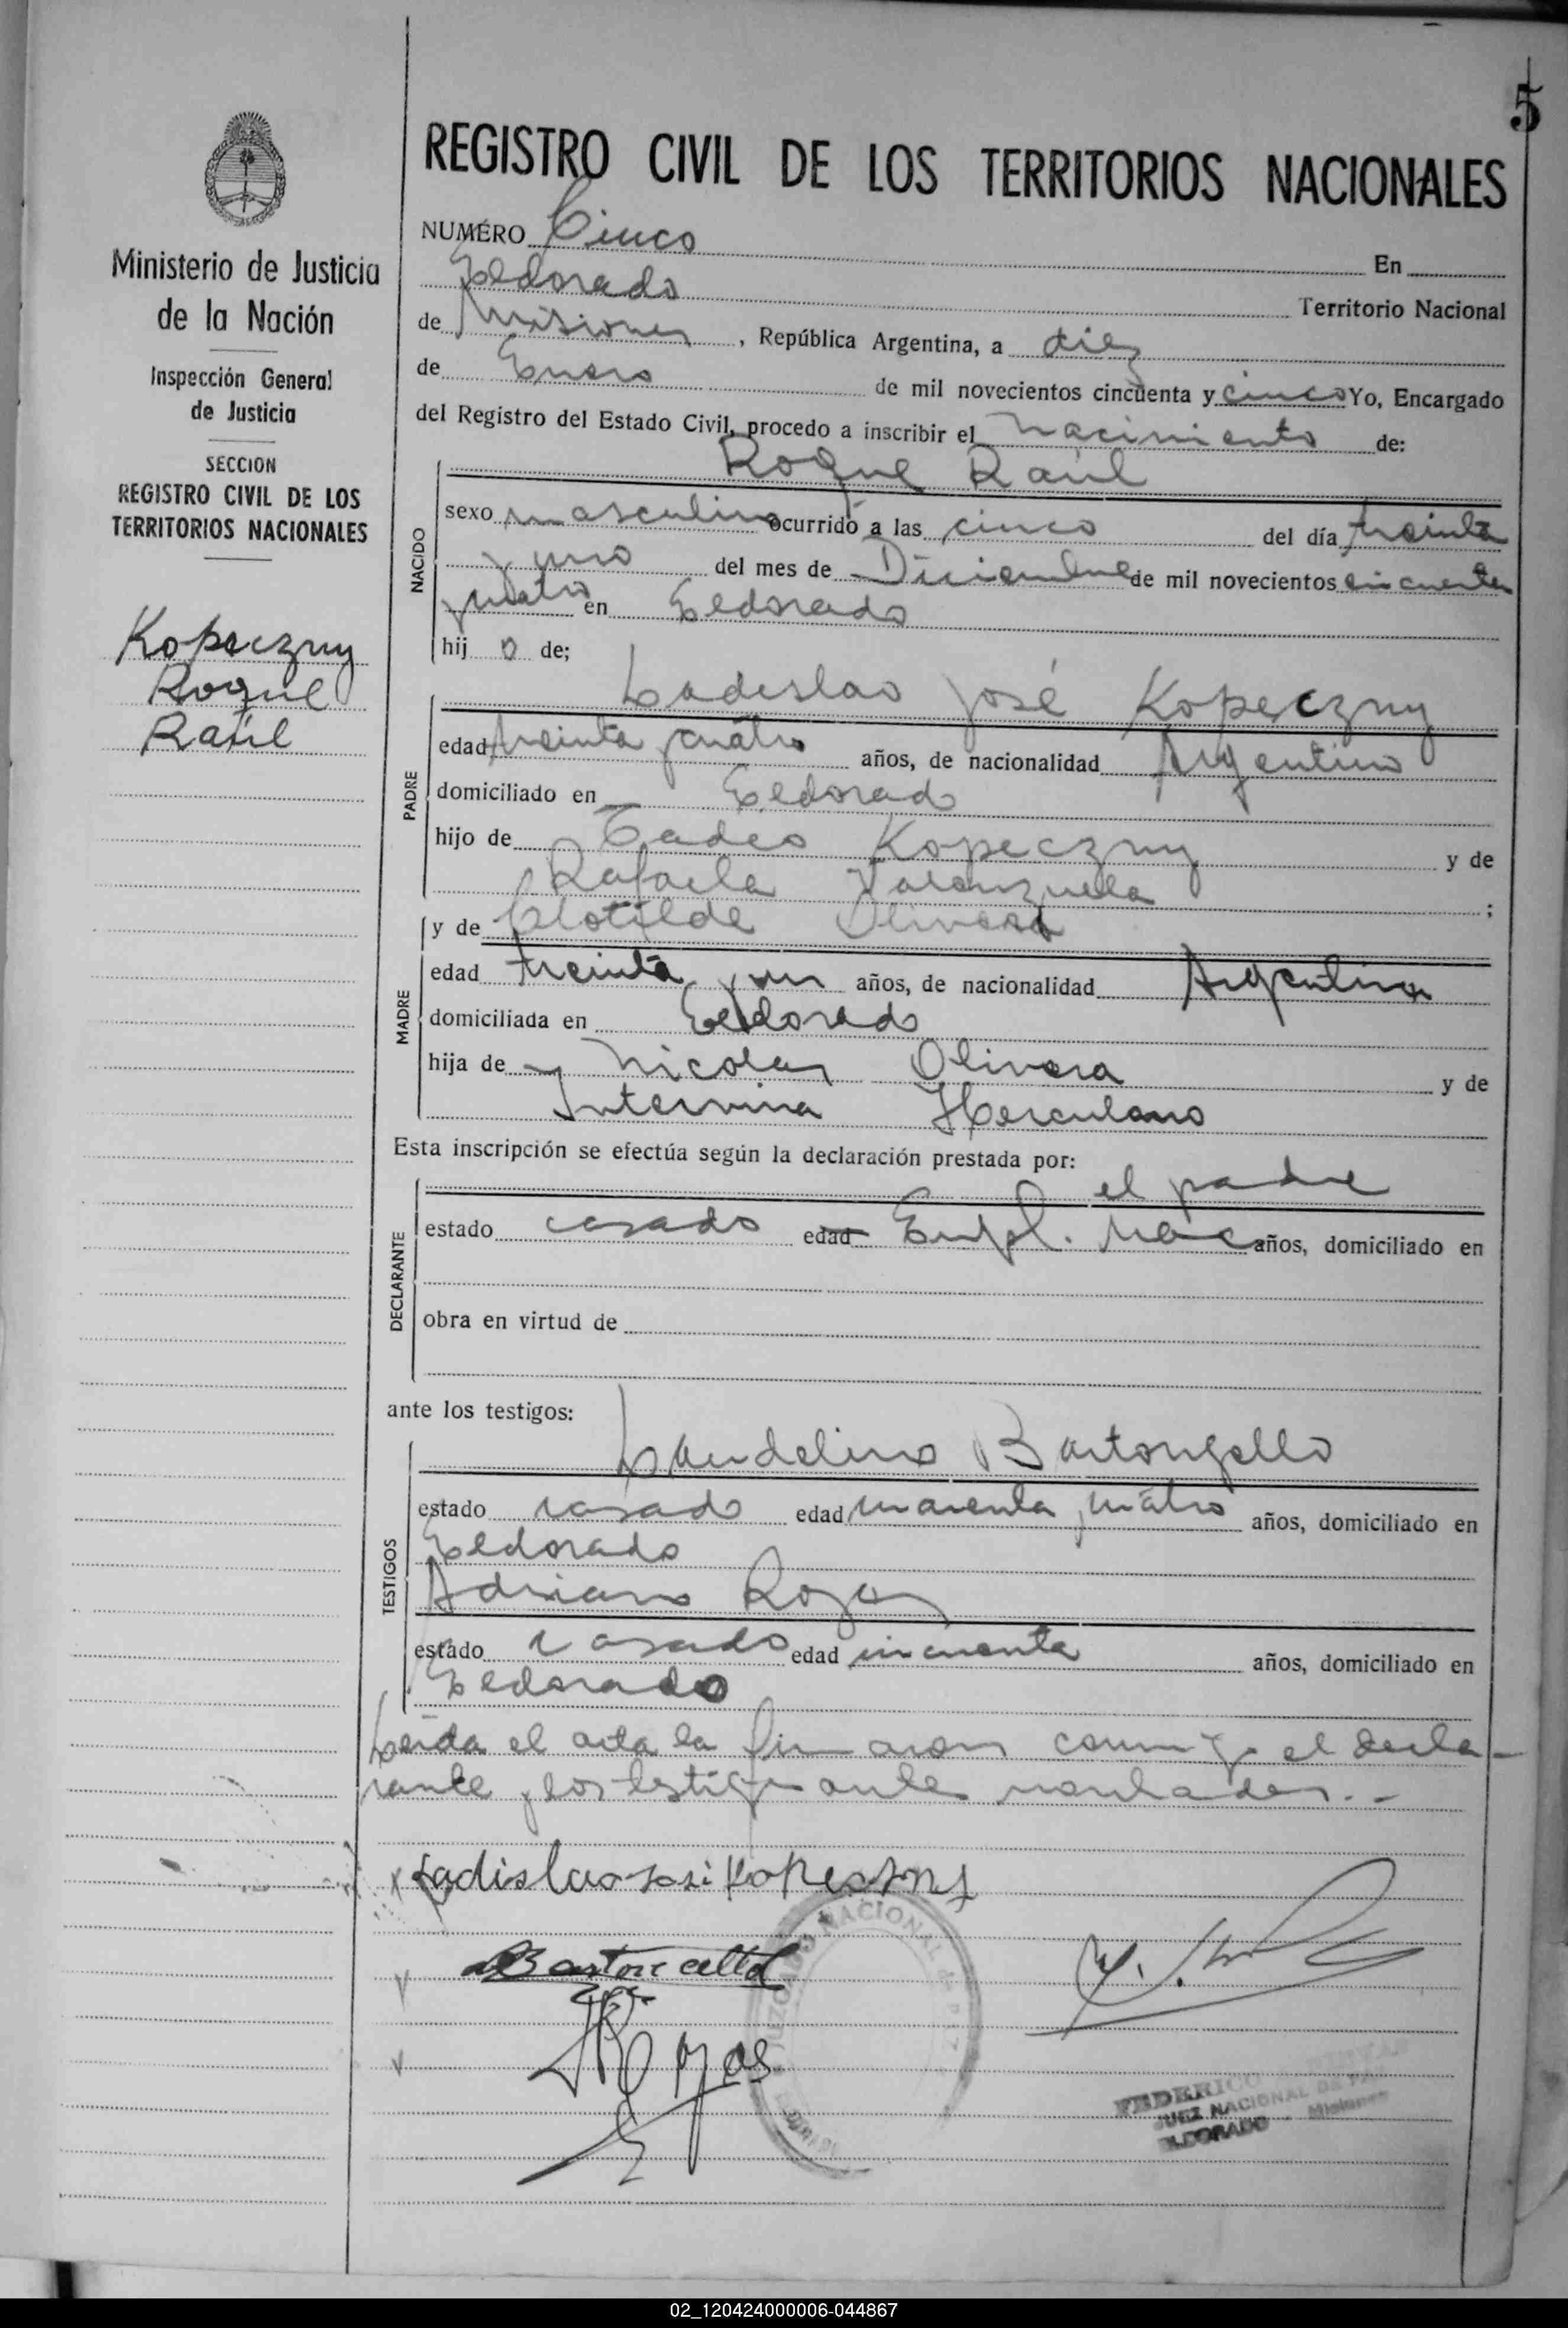 5
REGISTRO CIVIL DE LOS TERRITORIOS NACIONALES
Ministerio de Justicia
de la Nación
Inspección General
de Justicia
SECCION
REGISTRO CIVIL DE LOS
TERRITORIOS NACIONALES
Kopeczny
Roque
Raúl
NUMÉRO Cinco En
Eldorado Territorio Nacional
de Misiones, República Argentina, a diez
de Enero de mil novecientos cincuenta y cinco Yo, Encargado
del Registro del Estado Civil, procedo a inscribir el nacimiento de:
Roque Raúl
NACIDO
sexo masculino ocurrido a las cinco del día treinta
y uno del mes de Diciembre de mil novecientos cincuenta
y cuatro en Eldorado
hij o de;
Ladislao José Kopeczny
PADRE
edad treinta y cuatro años, de nacionalidad Argentino
domiciliado en Eldorado
hijo de Tadeo Kopeczny y de
Rafaela Valenzuela ;
y de Clotilde Olivera
MADRE
edad treinta y un años, de nacionalidad Argentina
domiciliada en Eldorado
hija de Nicolas Olivera y de
Intervina Herculano
Esta inscripción se efectúa según la declaración prestada por:
el padre
DECLARANTE
estado casado edad Empl. Nac años, domiciliado en
obra en virtud de
ante los testigos:
Laudelino Bartoncello
TESTIGOS
estado casado edad cuarenta y cuatro años, domiciliado en
Eldorado
Adriano Rojas
estado casado edad cincuenta años, domiciliado en
Eldorado
Leída el acta la firmaron conmigo el decla-
rante y los testigos antes nombrados.-
Ladislao José Kopeczny
Bartoncello
Rojas
JUZGADO NACIONAL DE PAZ
FEDERICO
JUEZ NACIONAL DE PAZ
ELDORADO - Misiones
02_120424000006-044867